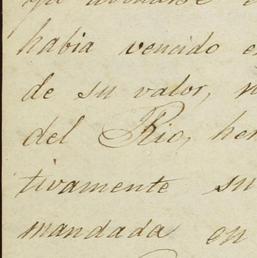 había vencido
de su valor,
del Rio, her
tivamente su
mandada en